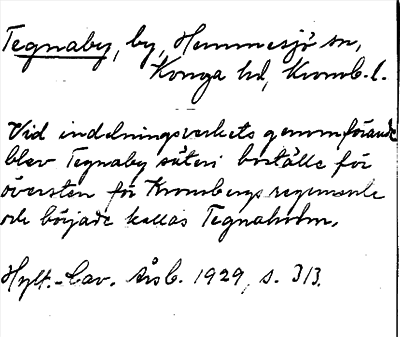 Tegnaby, by, Hemmesjö sn,
Konga hd, Kronob. l.
Vid indelningsverkets genomförande
blev Tegnaby säteri boställe för
översten för Kronobergs regemente
och började kallas Tegnaholm.
Hylt.-Cav. Årsb. 1929, s. 313.